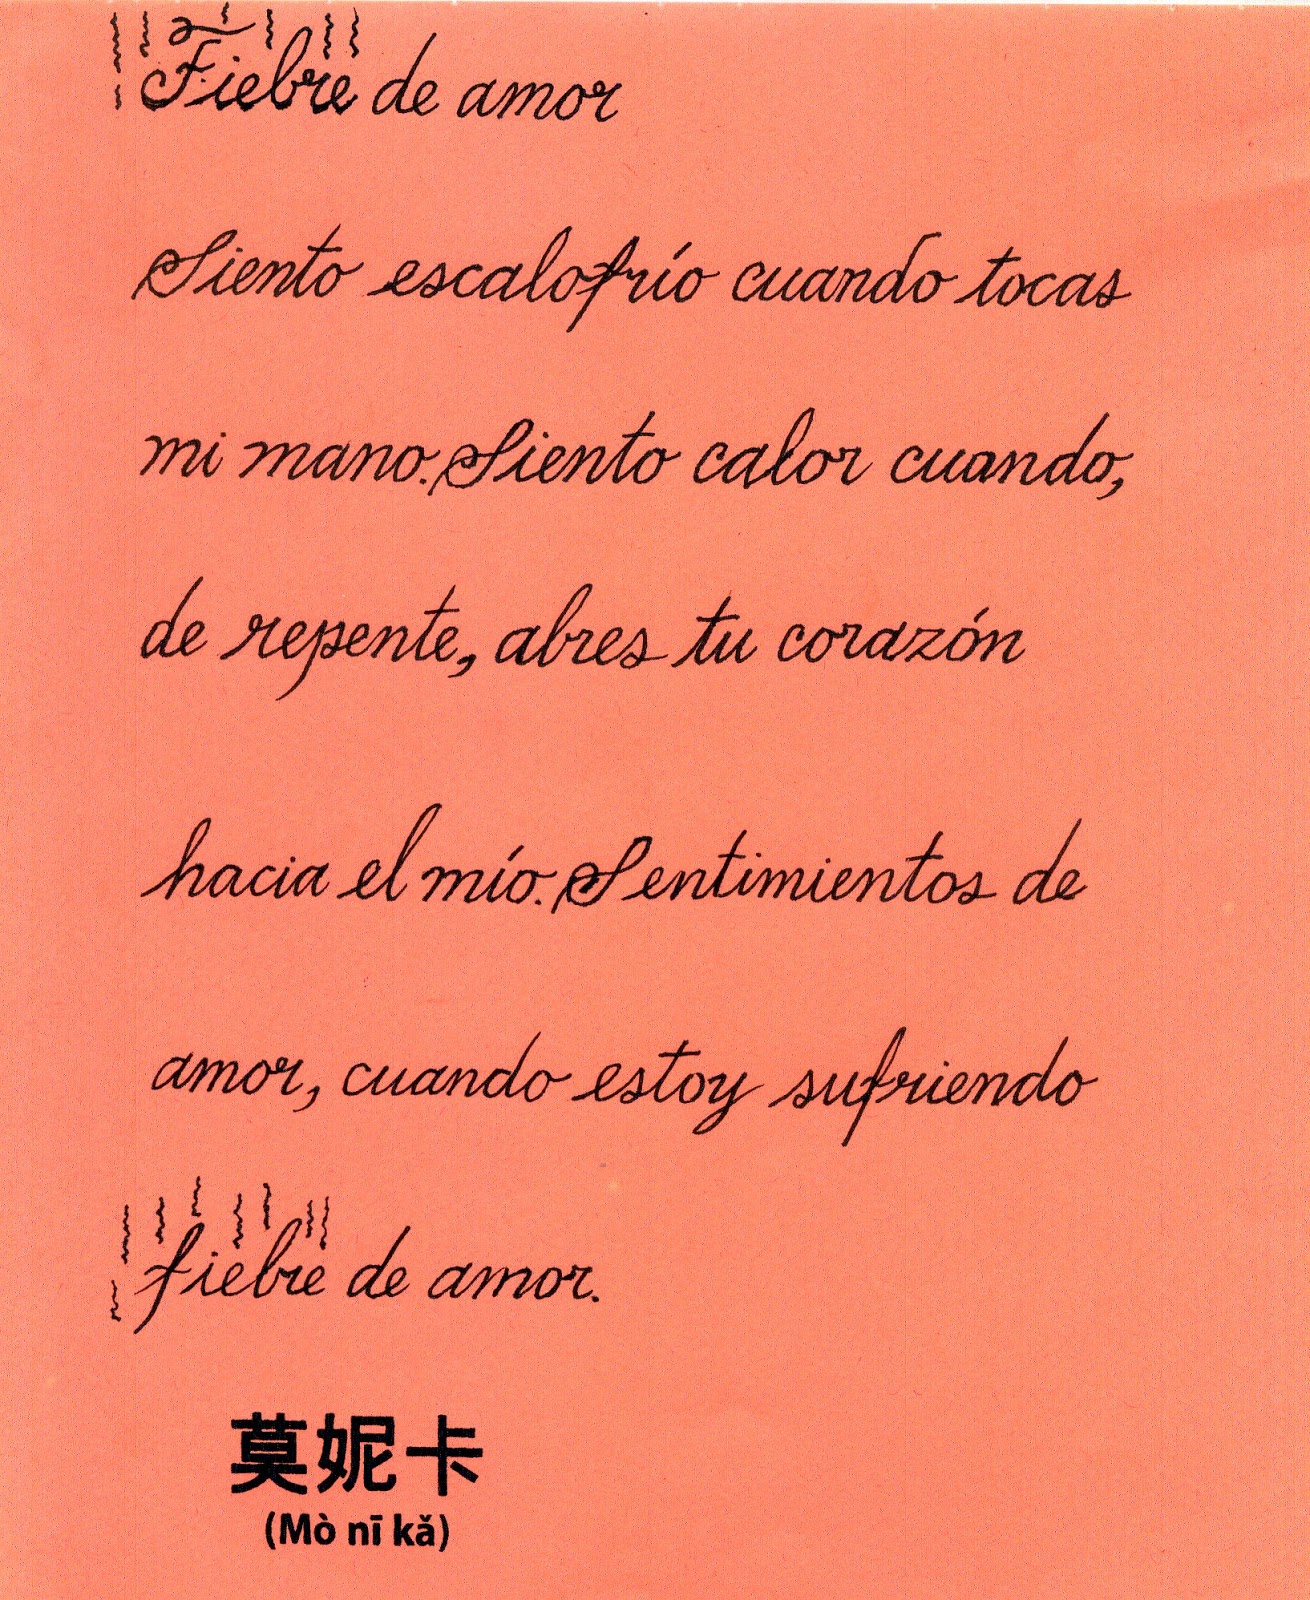 Fiebre de amor
Siento escalofrío cuando tocas
mi mano. Siento calor cuando,
de repente, abres tu corazón
hacia el mío. Sentimientos de
amor, cuando estoy sufriendo
fiebre de amor.
莫妮卡
(Mò nī kǎ)